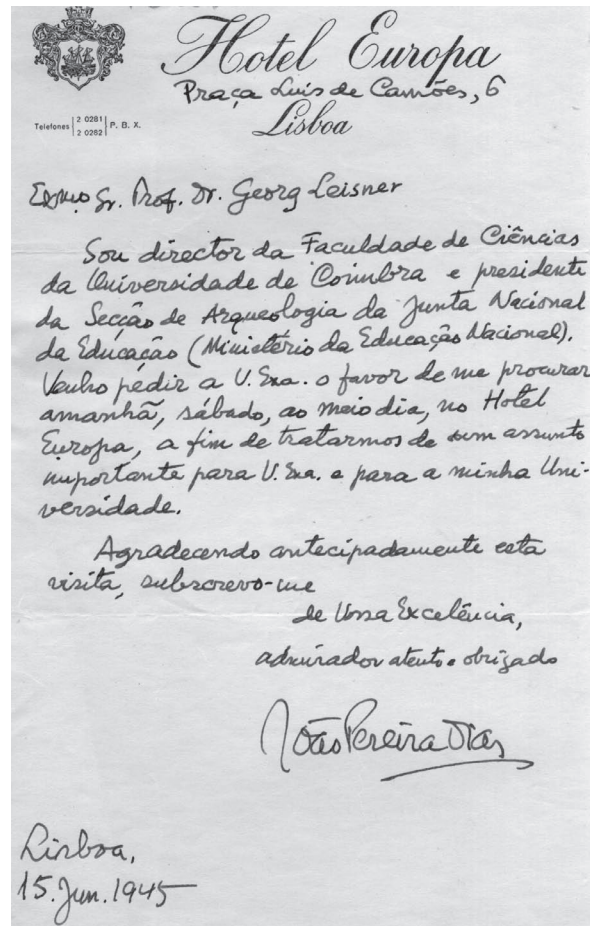 Hotel Europa
Praça Luis de Camões, 6
Lisboa
Telefones 2 0281 P. B. X.
2 0282
Exmo Sr. Prof. Dr. Georg Leisner
Sou director da Faculdade de Ciências
da Universidade de Coimbra e presidente
da Secção de Arqueologia da Junta Nacional
da Educação (Ministério da Educação Nacional).
Venho pedir a V. Exa. o favor de me procurar
amanhã, sábado, ao meio dia, no Hotel
Europa, a fim de tratarmos de um assunto
importante para V. Exa. e para a minha Uni-
versidade.
Agradecendo antecipadamente esta
visita, subscrevo-me
de Vossa Excelência,
admirador atento e obrigado
João Pereira Dias
Lisboa,
15. Jun. 1945